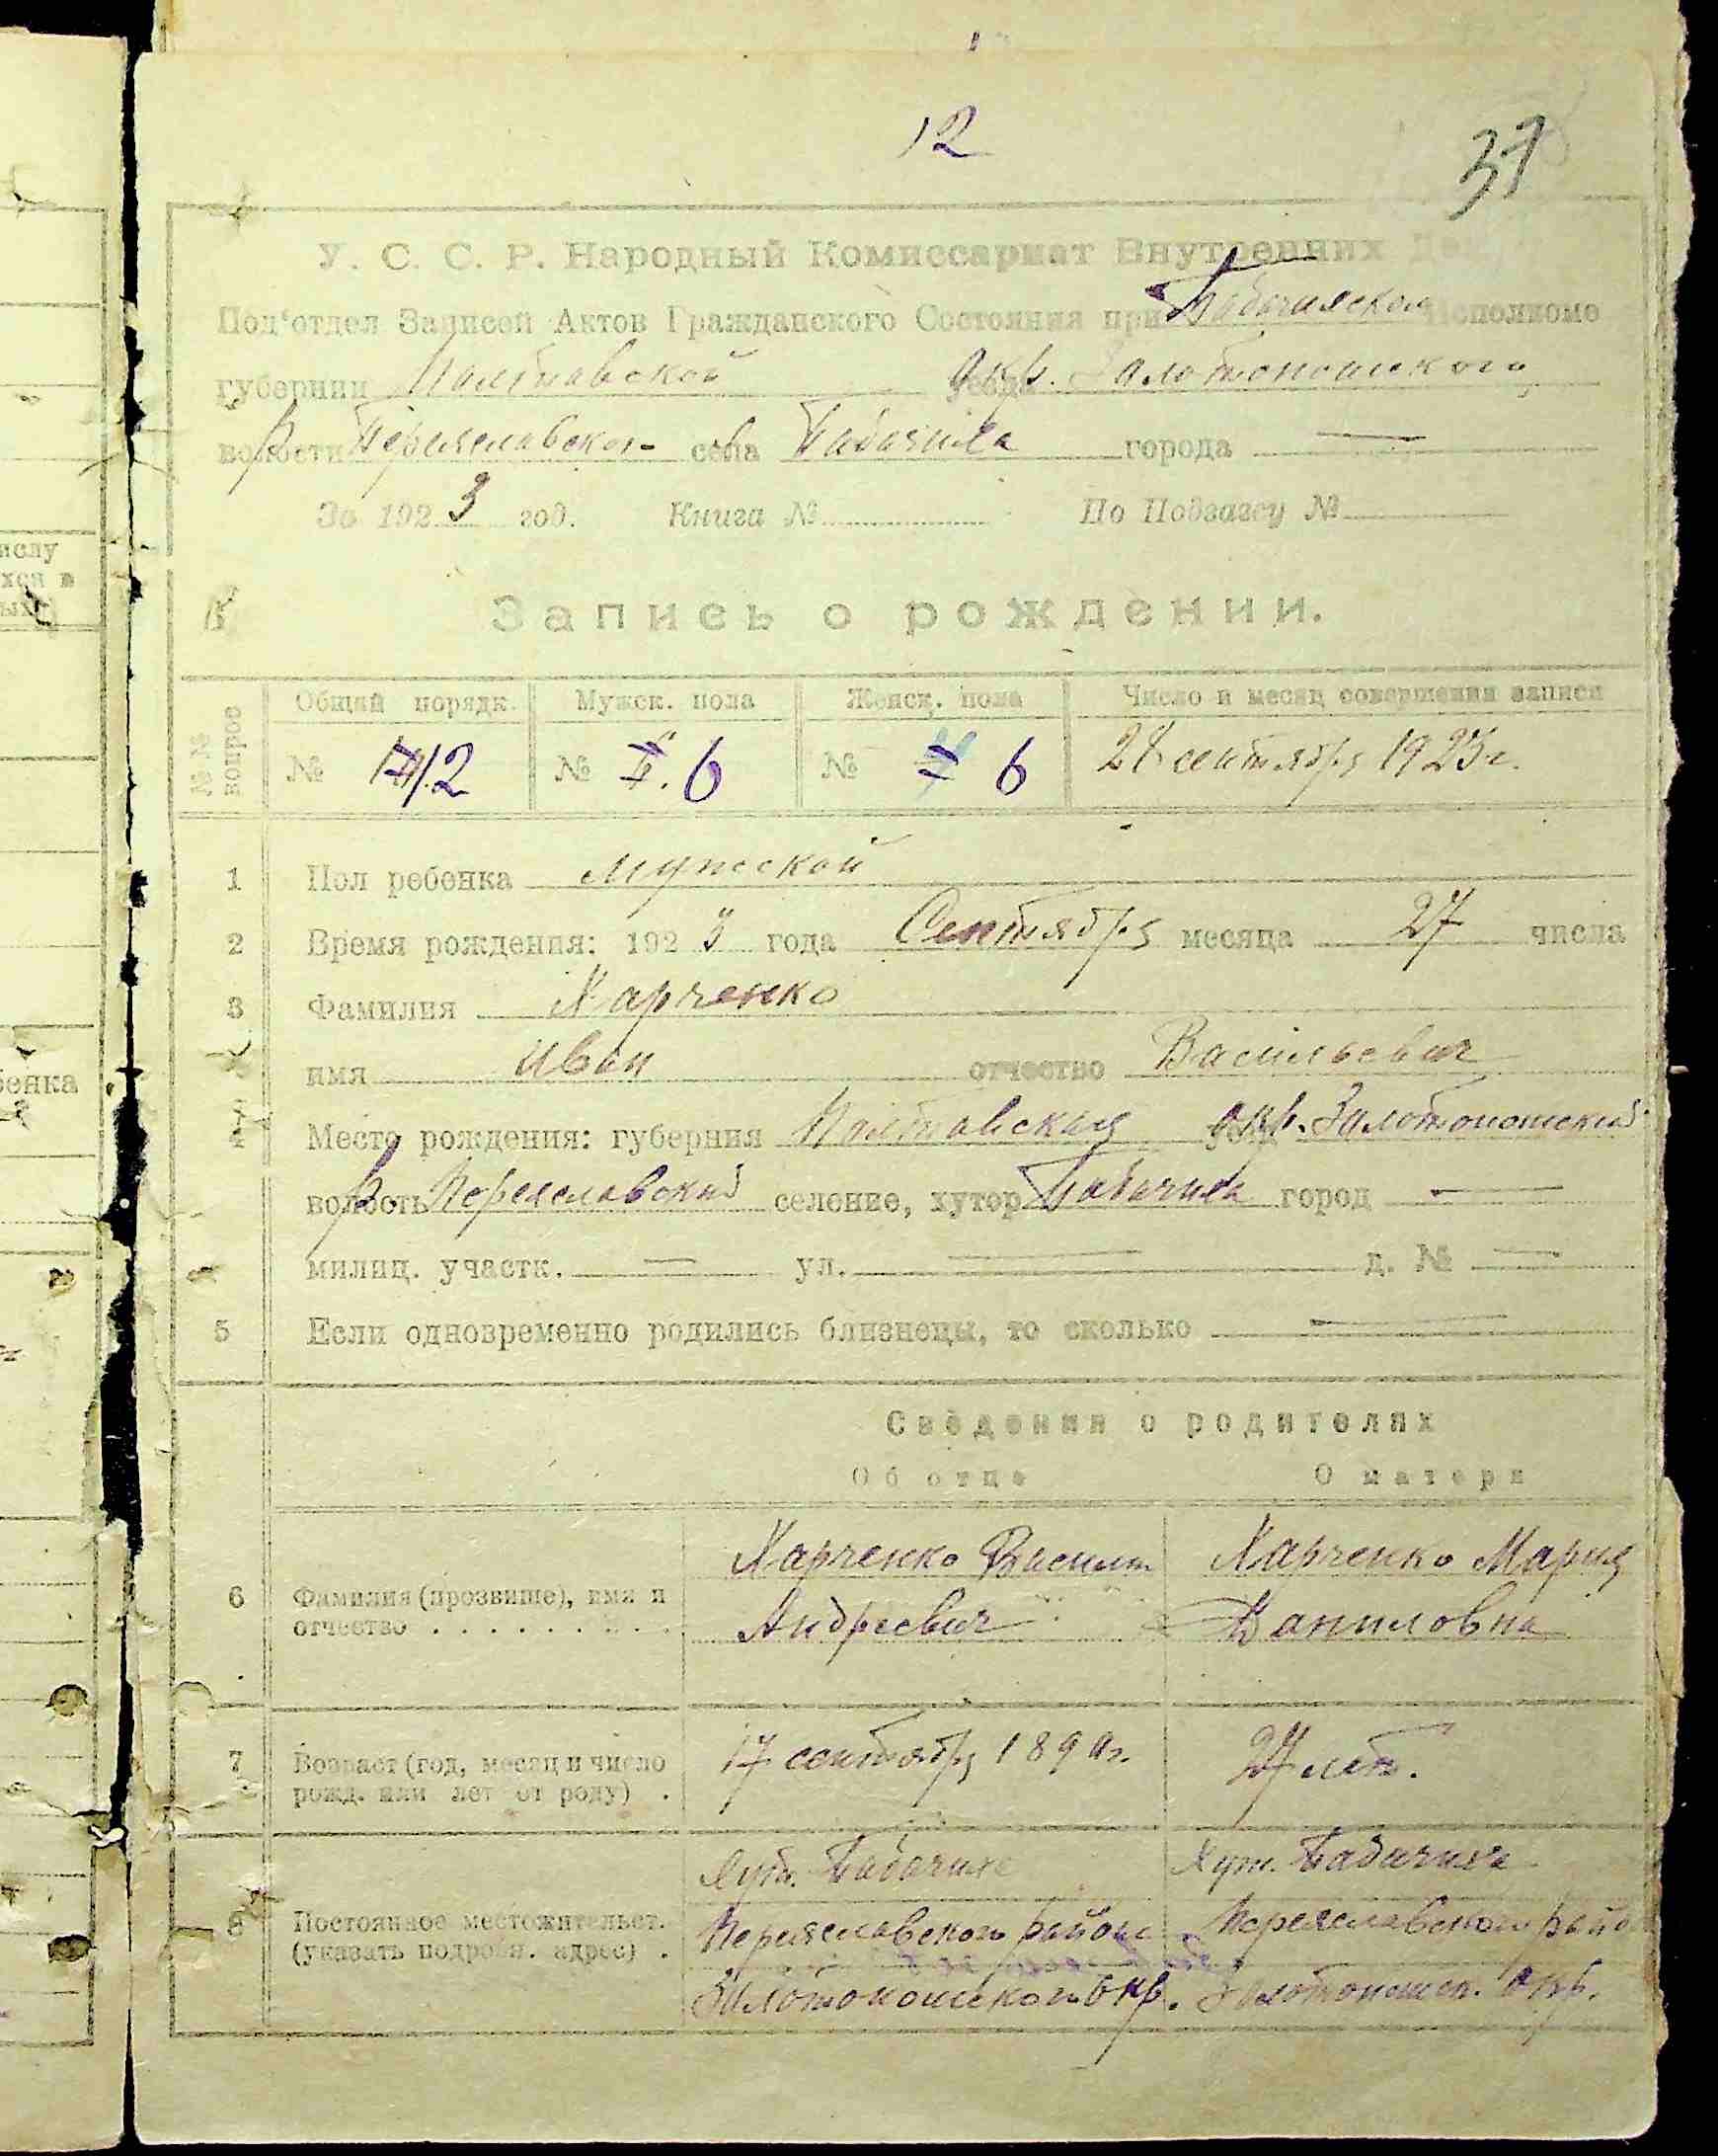 12
37
У. С. С. Р. Народный Комиссариат Внутренних Дел
Под'отдел Записей Актов Гражданского Состояния при Бабачихском Исполкоме
губернии Полтавской окр. Золотоношского
волости Переяславског села Бабачиха города —
За 1923 год. Книга № По Подзагсу №
Запись о рождении.
№№ вопрос
Общий порядк. Мужск. пола Женск. пола Число и месяц совершения записи
№ 12 № 6 № 6 28 сентября 1923 г.
1 Пол ребенка мужской
2 Время рождения: 1923 года Сентября месяца 27 числа
3 Фамилия Харченко
имя Иван отчество Васильевич
4 Место рождения: губерния Полтавская окр. Золотоношский
волость р. Переяславский селение, хутор Бабачиха город —
милиц. участк. — ул. — д. № —
5 Если одновременно родились близнецы, то сколько —
Сведения о родителях
Об отце О матери
6 Фамилия (прозвище), имя и отчество . . . . . . . . .
Харченко Василий Андреевич
Харченко Мария Даниловна
7 Возраст (год, месяц и число рожд. или лет от роду) .
17 сентября
27 лет.
8 Постоянное местожительст. (указать подробн. адрес) .
Хут. Бабачиха
Переяславского района
Золотоношского окр.
Хут. Бабачиха
Переяславского райо
Золотоношск. окр.
ислу
хся в
ых
бенка